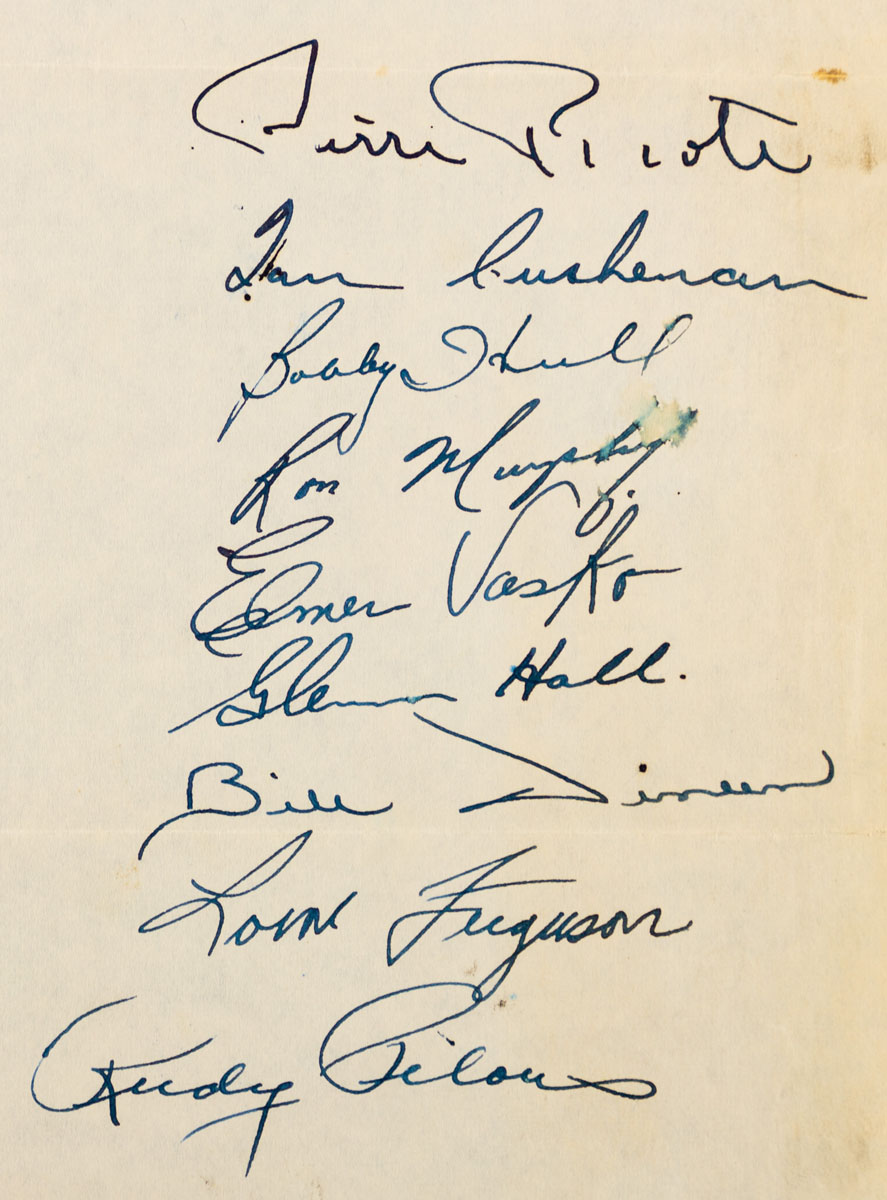 Pierre Pilote
Ian Cushenan
Bobby Hull
Ron Murphy.
Elmer Vasko
Glenn Hall.
Bill Dineen
Lorne Ferguson
Rudy Pilous